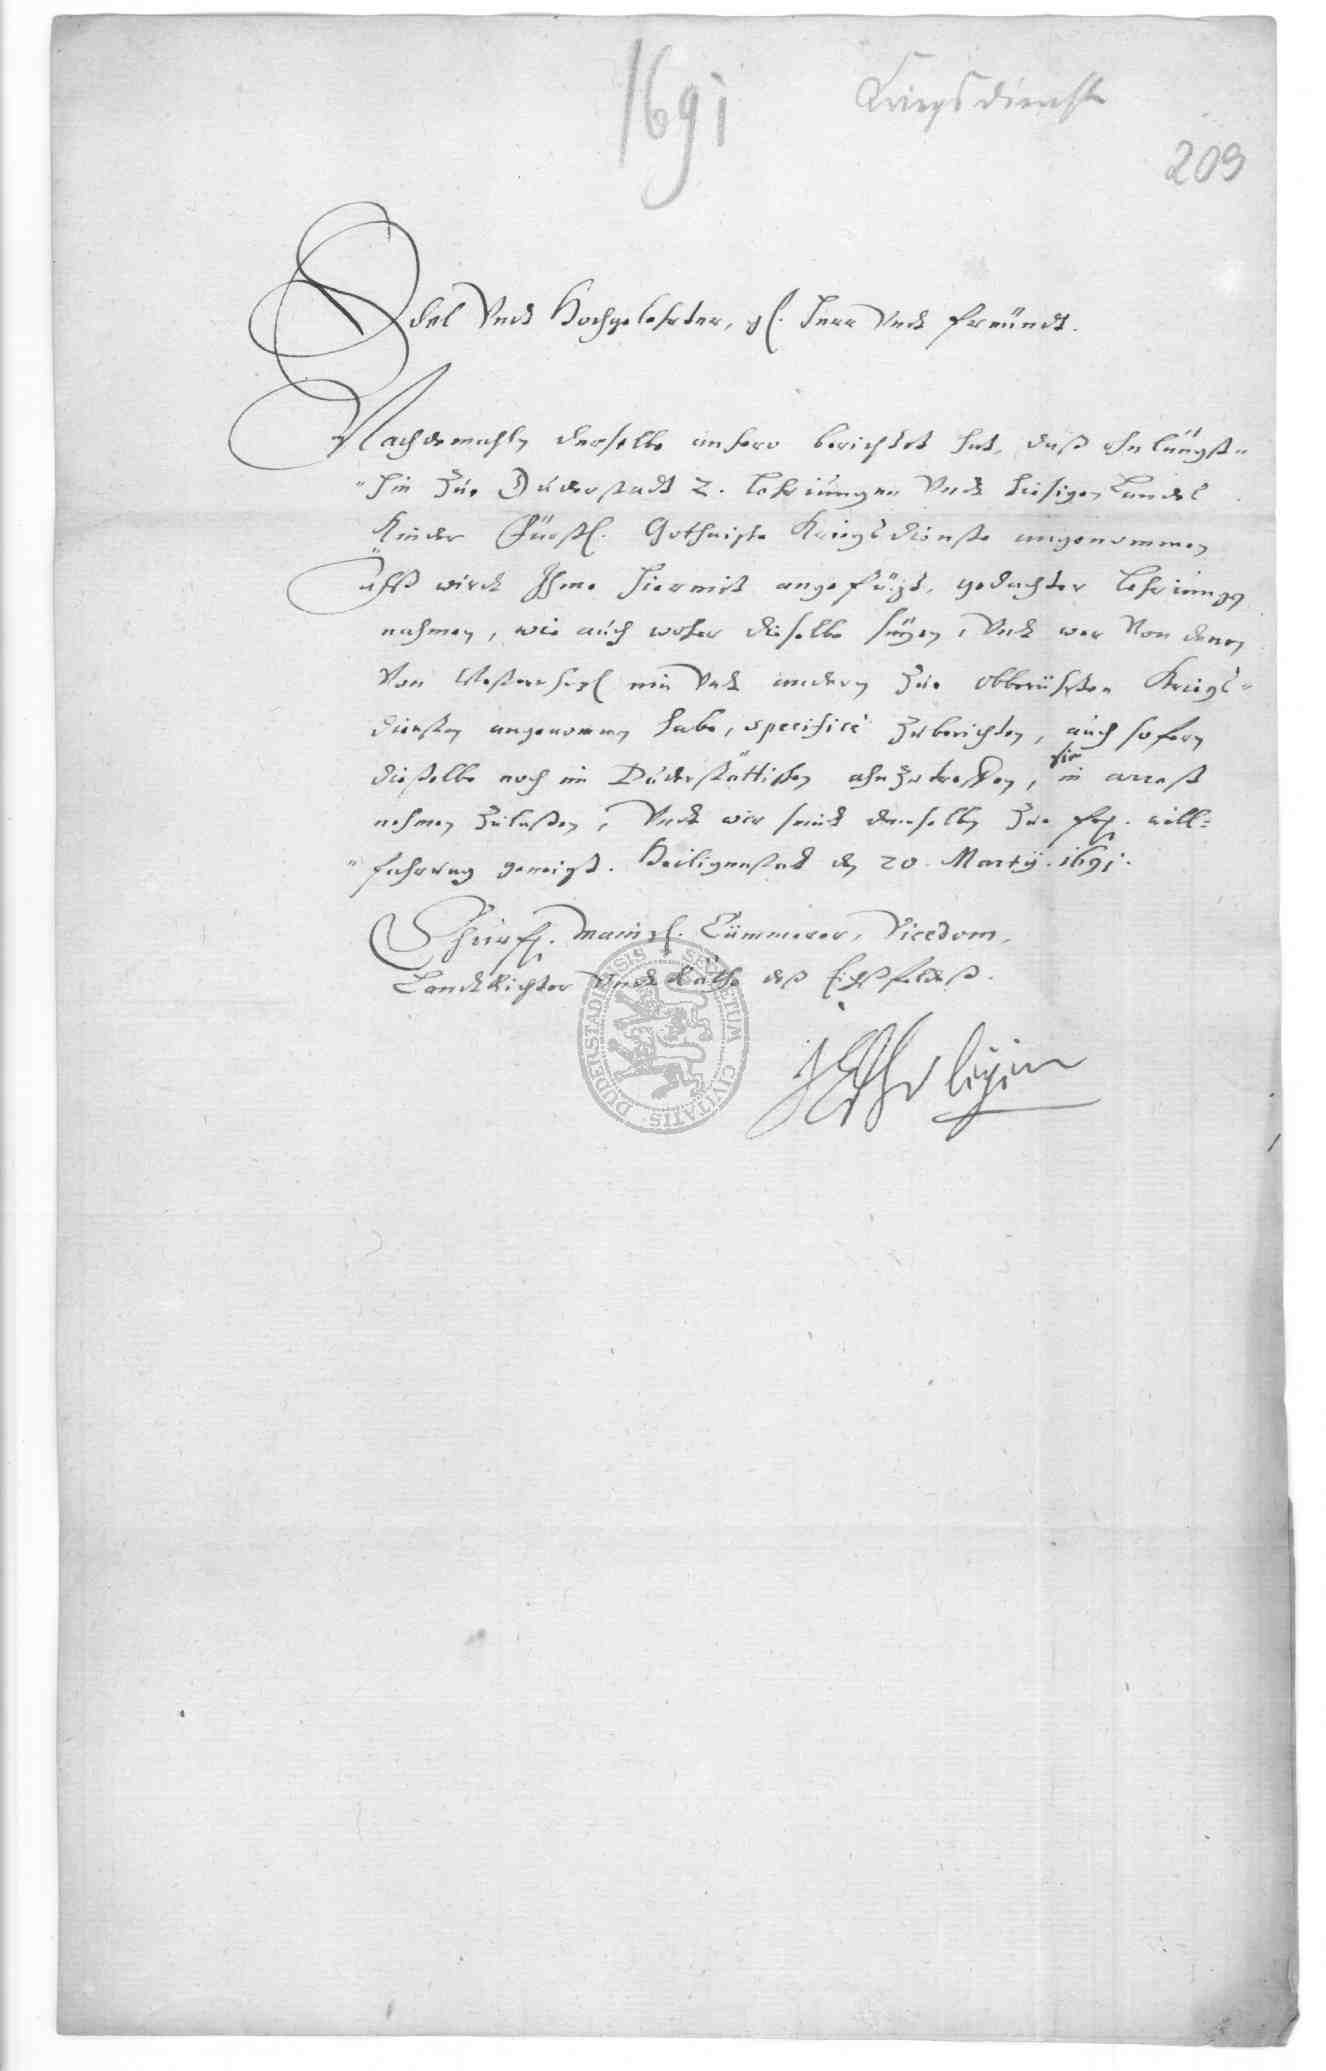 1691
Kriegsdienste
209
Edel Undt Hochgelehrter, gl. Herr Undt Freündt.
Nachdemahln derselbe anhero berichtet hat, daß ohnlängst-
hin Zue Duderstadt 2. Lehrjungen Undt hiesigen Landes
Kinder Fürstl. Gothaische Kriegsdienste angenommen
Alß wirdt Ihme hiermit angefügt, gedachter Lehrjungen
nahmen, wie auch woher dieselbe seyen, Undt wer Von denen
Von und andern Zue obberührten Kriegs-
diensten angenommen habe, specificè Zuberichten, auch sofern
dieselbe noch im Duderstättischen ahnZutreffen, sie in arrest
nehmen Zulaßen, Undt wir seindt demselben Zue will-
fahrung geneigt. Heiligenstadt den 20. Martij. 1691.
Churfl. Maintzl. Cämmerer, Vicedom,
LandtRichter Undt Räthe deß Eichßfeldeß.
SECRETUM CIVITATIS DUDERSTADIENSIS